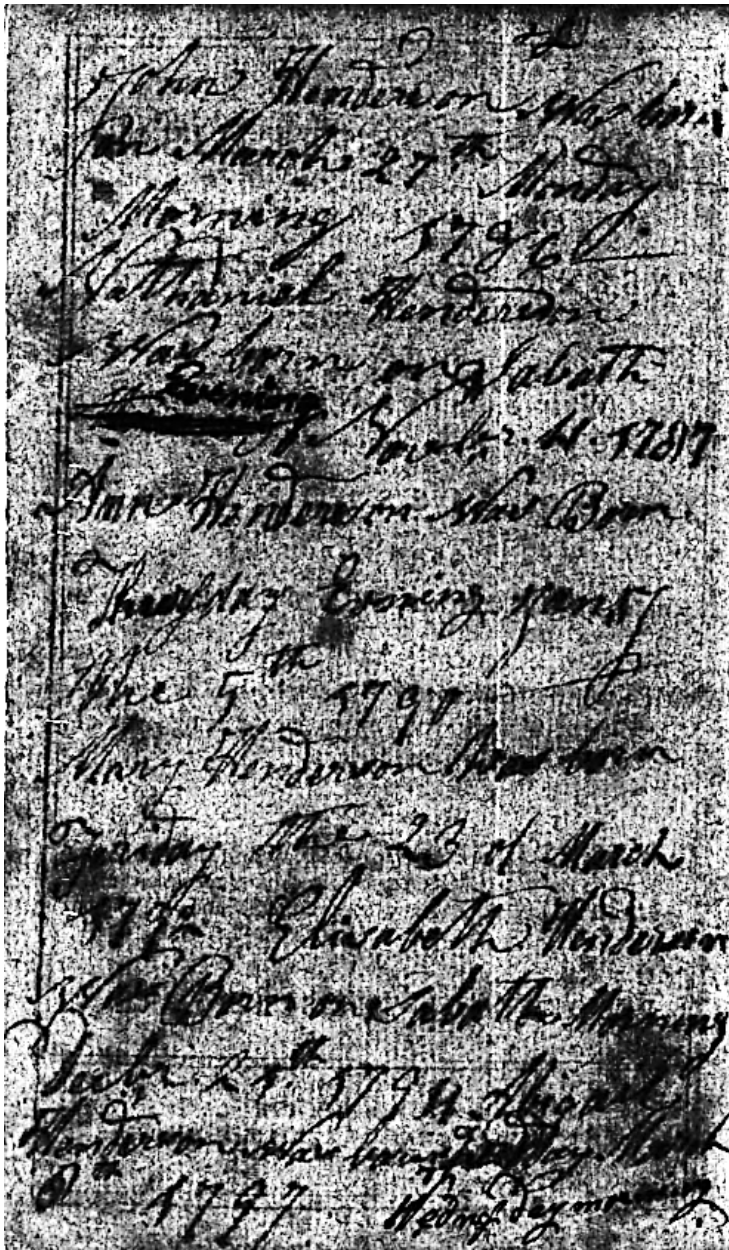 John Henderson Was born
on March 27th Monday
Morning 1786
Nathaniel Henderson
Was born on Sabath
Evening
Novbr. 4 1787
Ann Henderson Was Born
Thursday Evening
the 5th 179
Mary Henderson born
Friday the 23 of March
179 Elisabeth Henderson
Was Born on Sabath Morning
Decbr 2 th 1794
Henderson Was born March
8th 1797 Wednsday morning